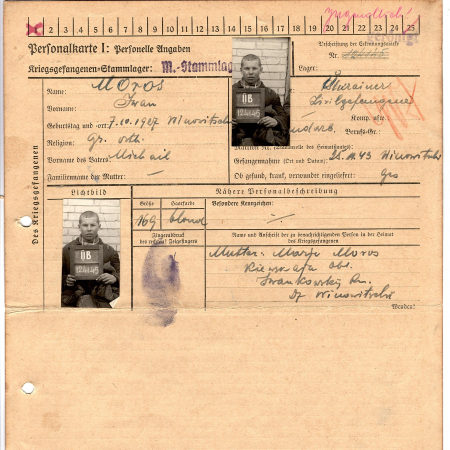 2 3 4 5 6 7 8 9 10 11 12 13 14 15 16 17 18 19 20 21 22 23 24 25
Personalkarte I: Personelle Angaben
Beschriftung der Erkennungsmarke
Nr.
Kriegsgefangenen-Stammlager: M.-Stammlag
Lager:
Des Kriegsgefangenen
Name: Moros
Vorname: Iwan
Geburtstag und -ort: 7.10.1927 Winowitschi
Religion: Gr. orth.
Vorname des Vaters: Michail
Familienname der Mutter:
Zivilgefangener
Komp. usw.:
Berufs-Gr.:
Gefangennahme (Ort und Datum): 25.11.43 Winowitschi
Ob gesund, krank, verwundet eingeliefert: Ges
Lichtbild
Nähere Personalbeschreibung
Größe
Haarfarbe
Besondere Kennzeichen:
169
blond
Fingerabdruck
des rechten Zeigefingers
Name und Anschrift der zu benachrichtigenden Person in der Heimat
des Kriegsgefangenen
Mutter: Marja Moros
Kiewskaja Obl.
Iwankowskij Rn.
Df Winowitschi
Wenden!
OB
124145
OB
124145